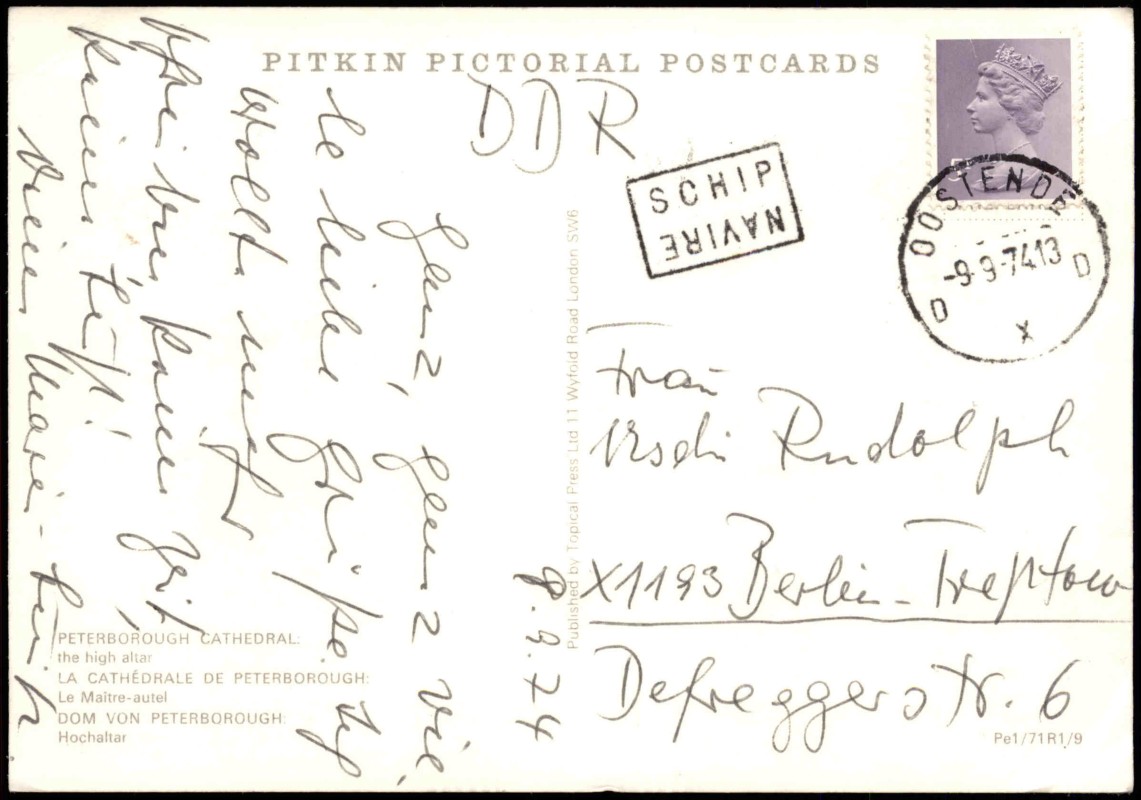 PITKIN PICTORIAL POSTCARDS
DDR
SCHIP
NAVIRE
OOSTENDE
-9-9-7413
D D
x
8.9.74
Ganz, ganz vie
le liebe Grüße. Ich
wollt mich
keinen
Dein
Frau
Urseli Rudolph
X1193 Berlin-Treptow
Defreggerstr. 6
Published by Topical Press Ltd 11 Wyfold Road London SW6
PETERBOROUGH CATHEDRAL:
the high altar
LA CATHÉDRALE DE PETERBOROUGH:
Le Maître-autel
DOM VON PETERBOROUGH:
Hochaltar
Pe1/71R1/9